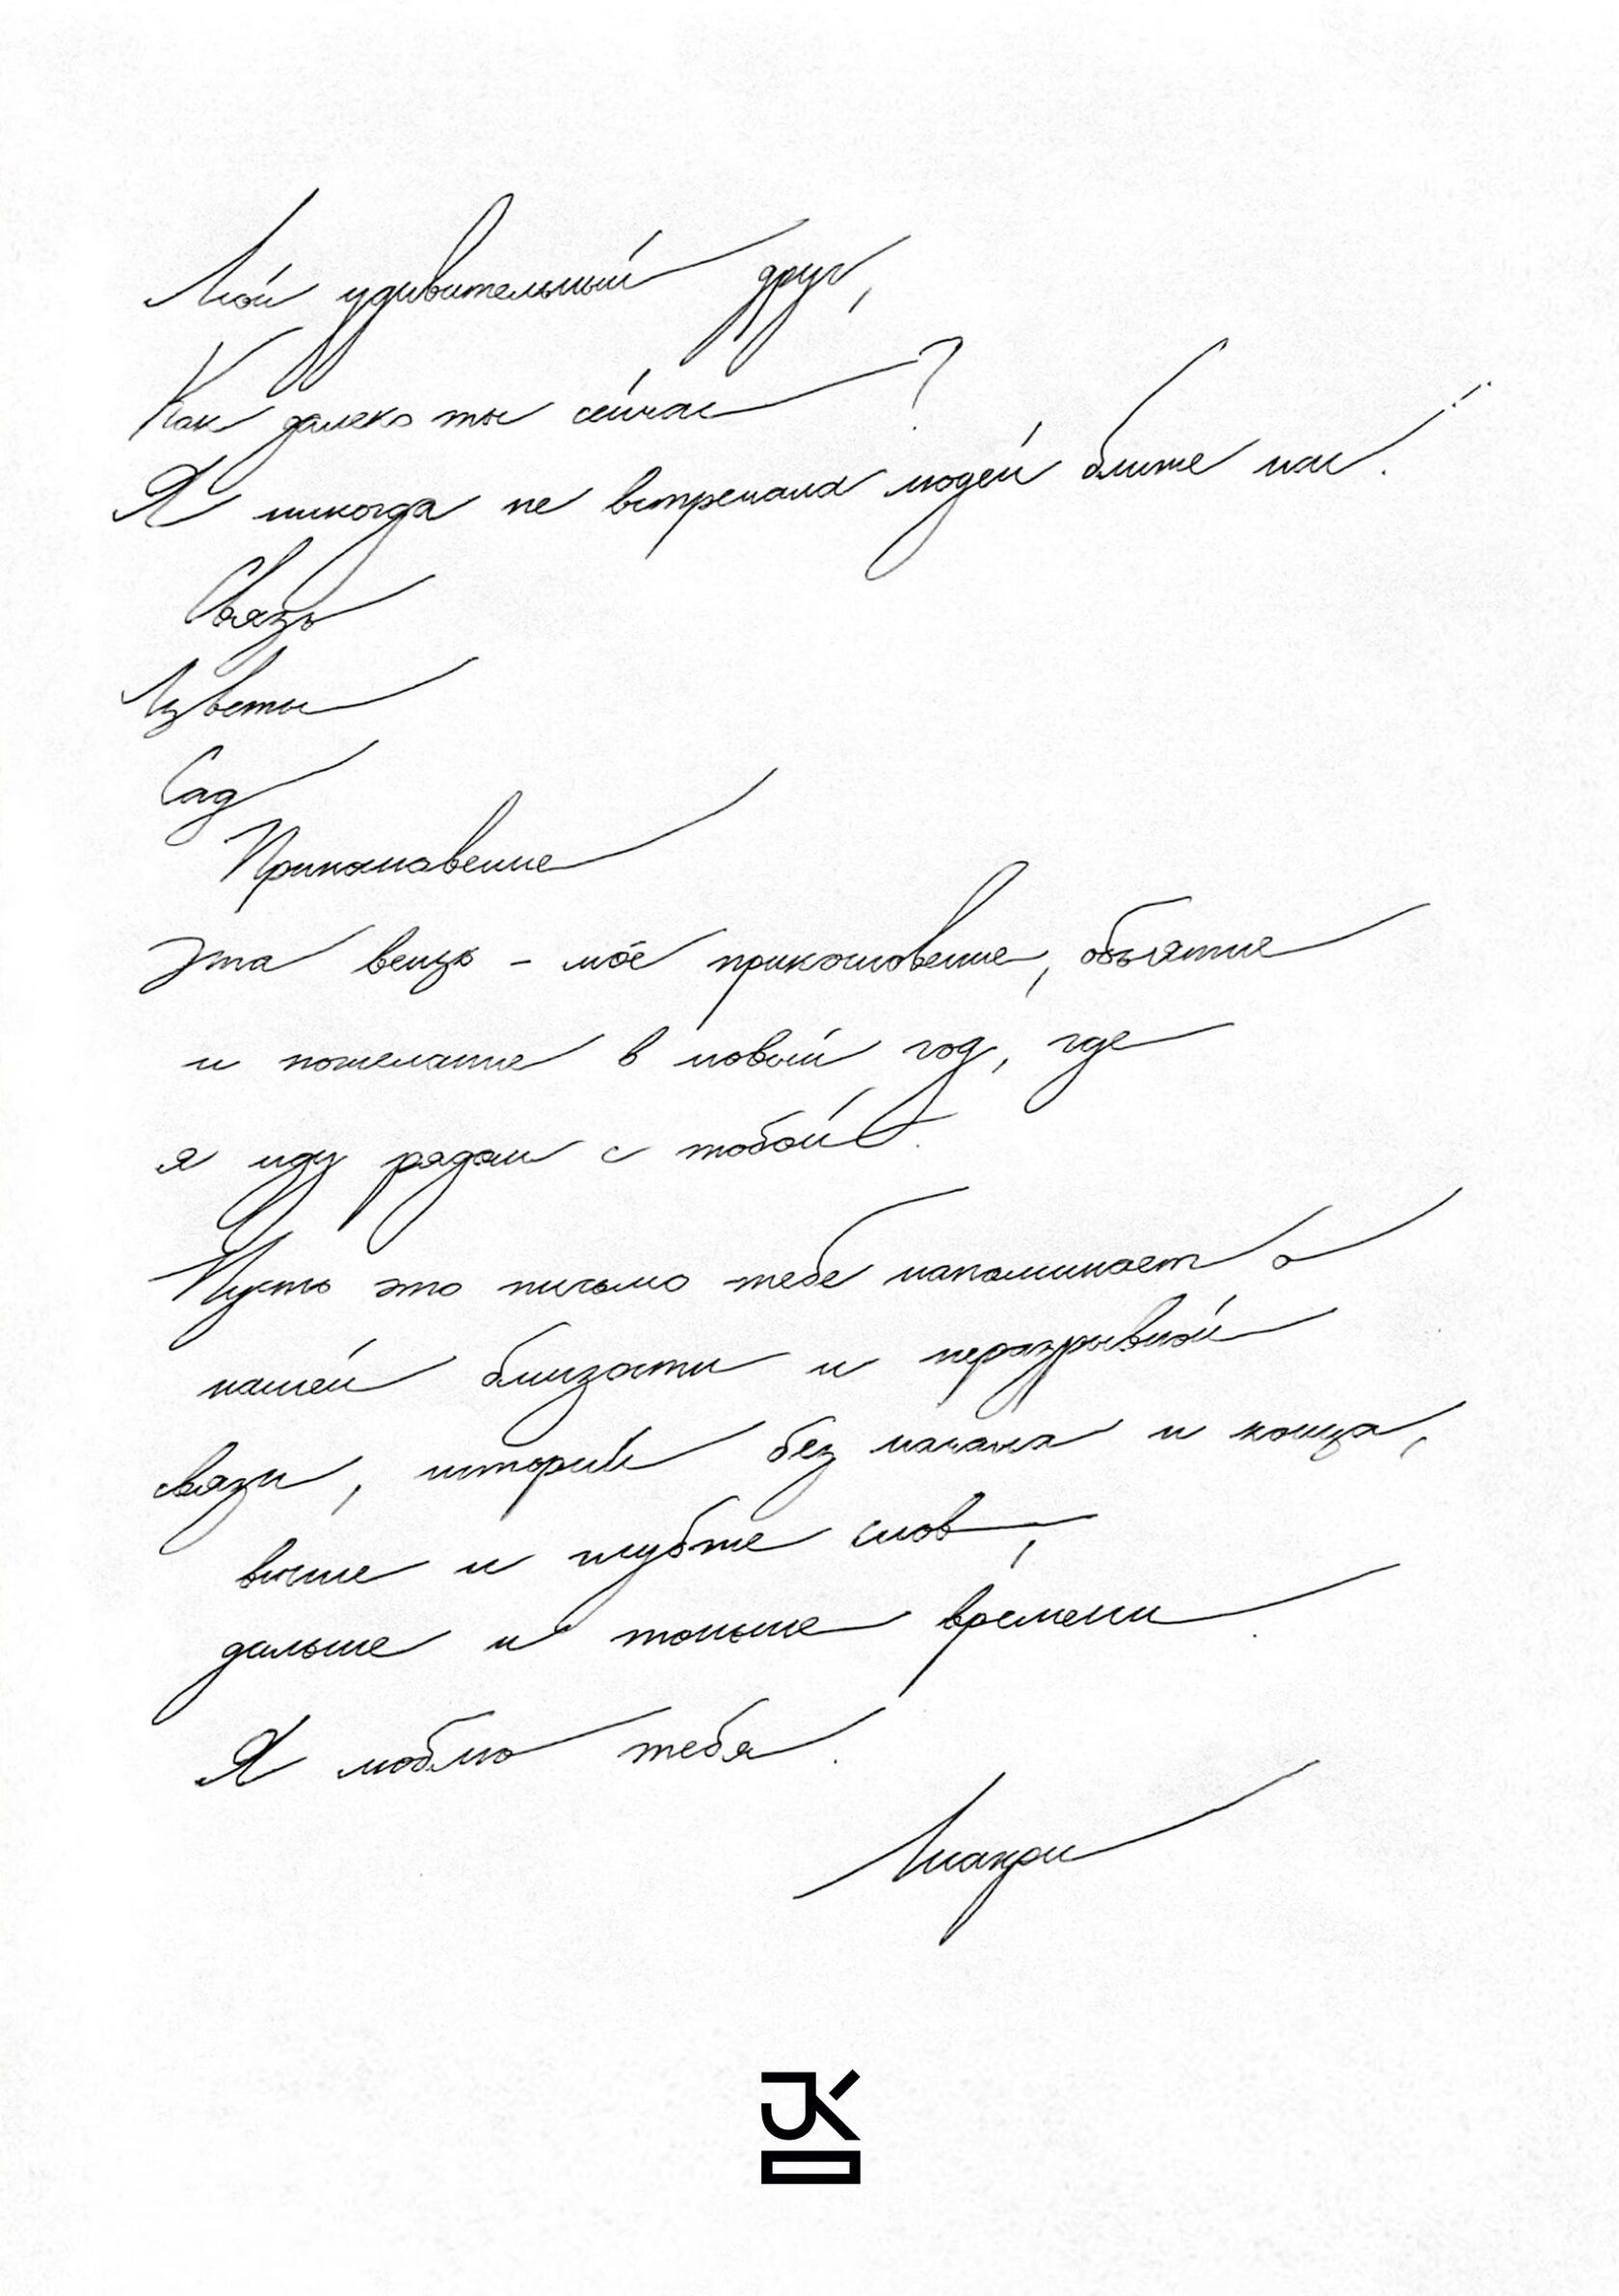 Мой удивительный друг,
Как далеко ты сейчас?
Я никогда не встречала людей ближе нас.
Связь
Цветы
Сад
Прикосновение
Эта вещь - моё прикосновение, объятие
и пожелание в новый год, где
я иду рядом с тобой.
Пусть это письмо тебе напоминает о
нашей близости и неразрывной
связи, историй без начала и конца,
выше и глубже слов,
дальше и тоньше времени.
Я люблю тебя.
JK